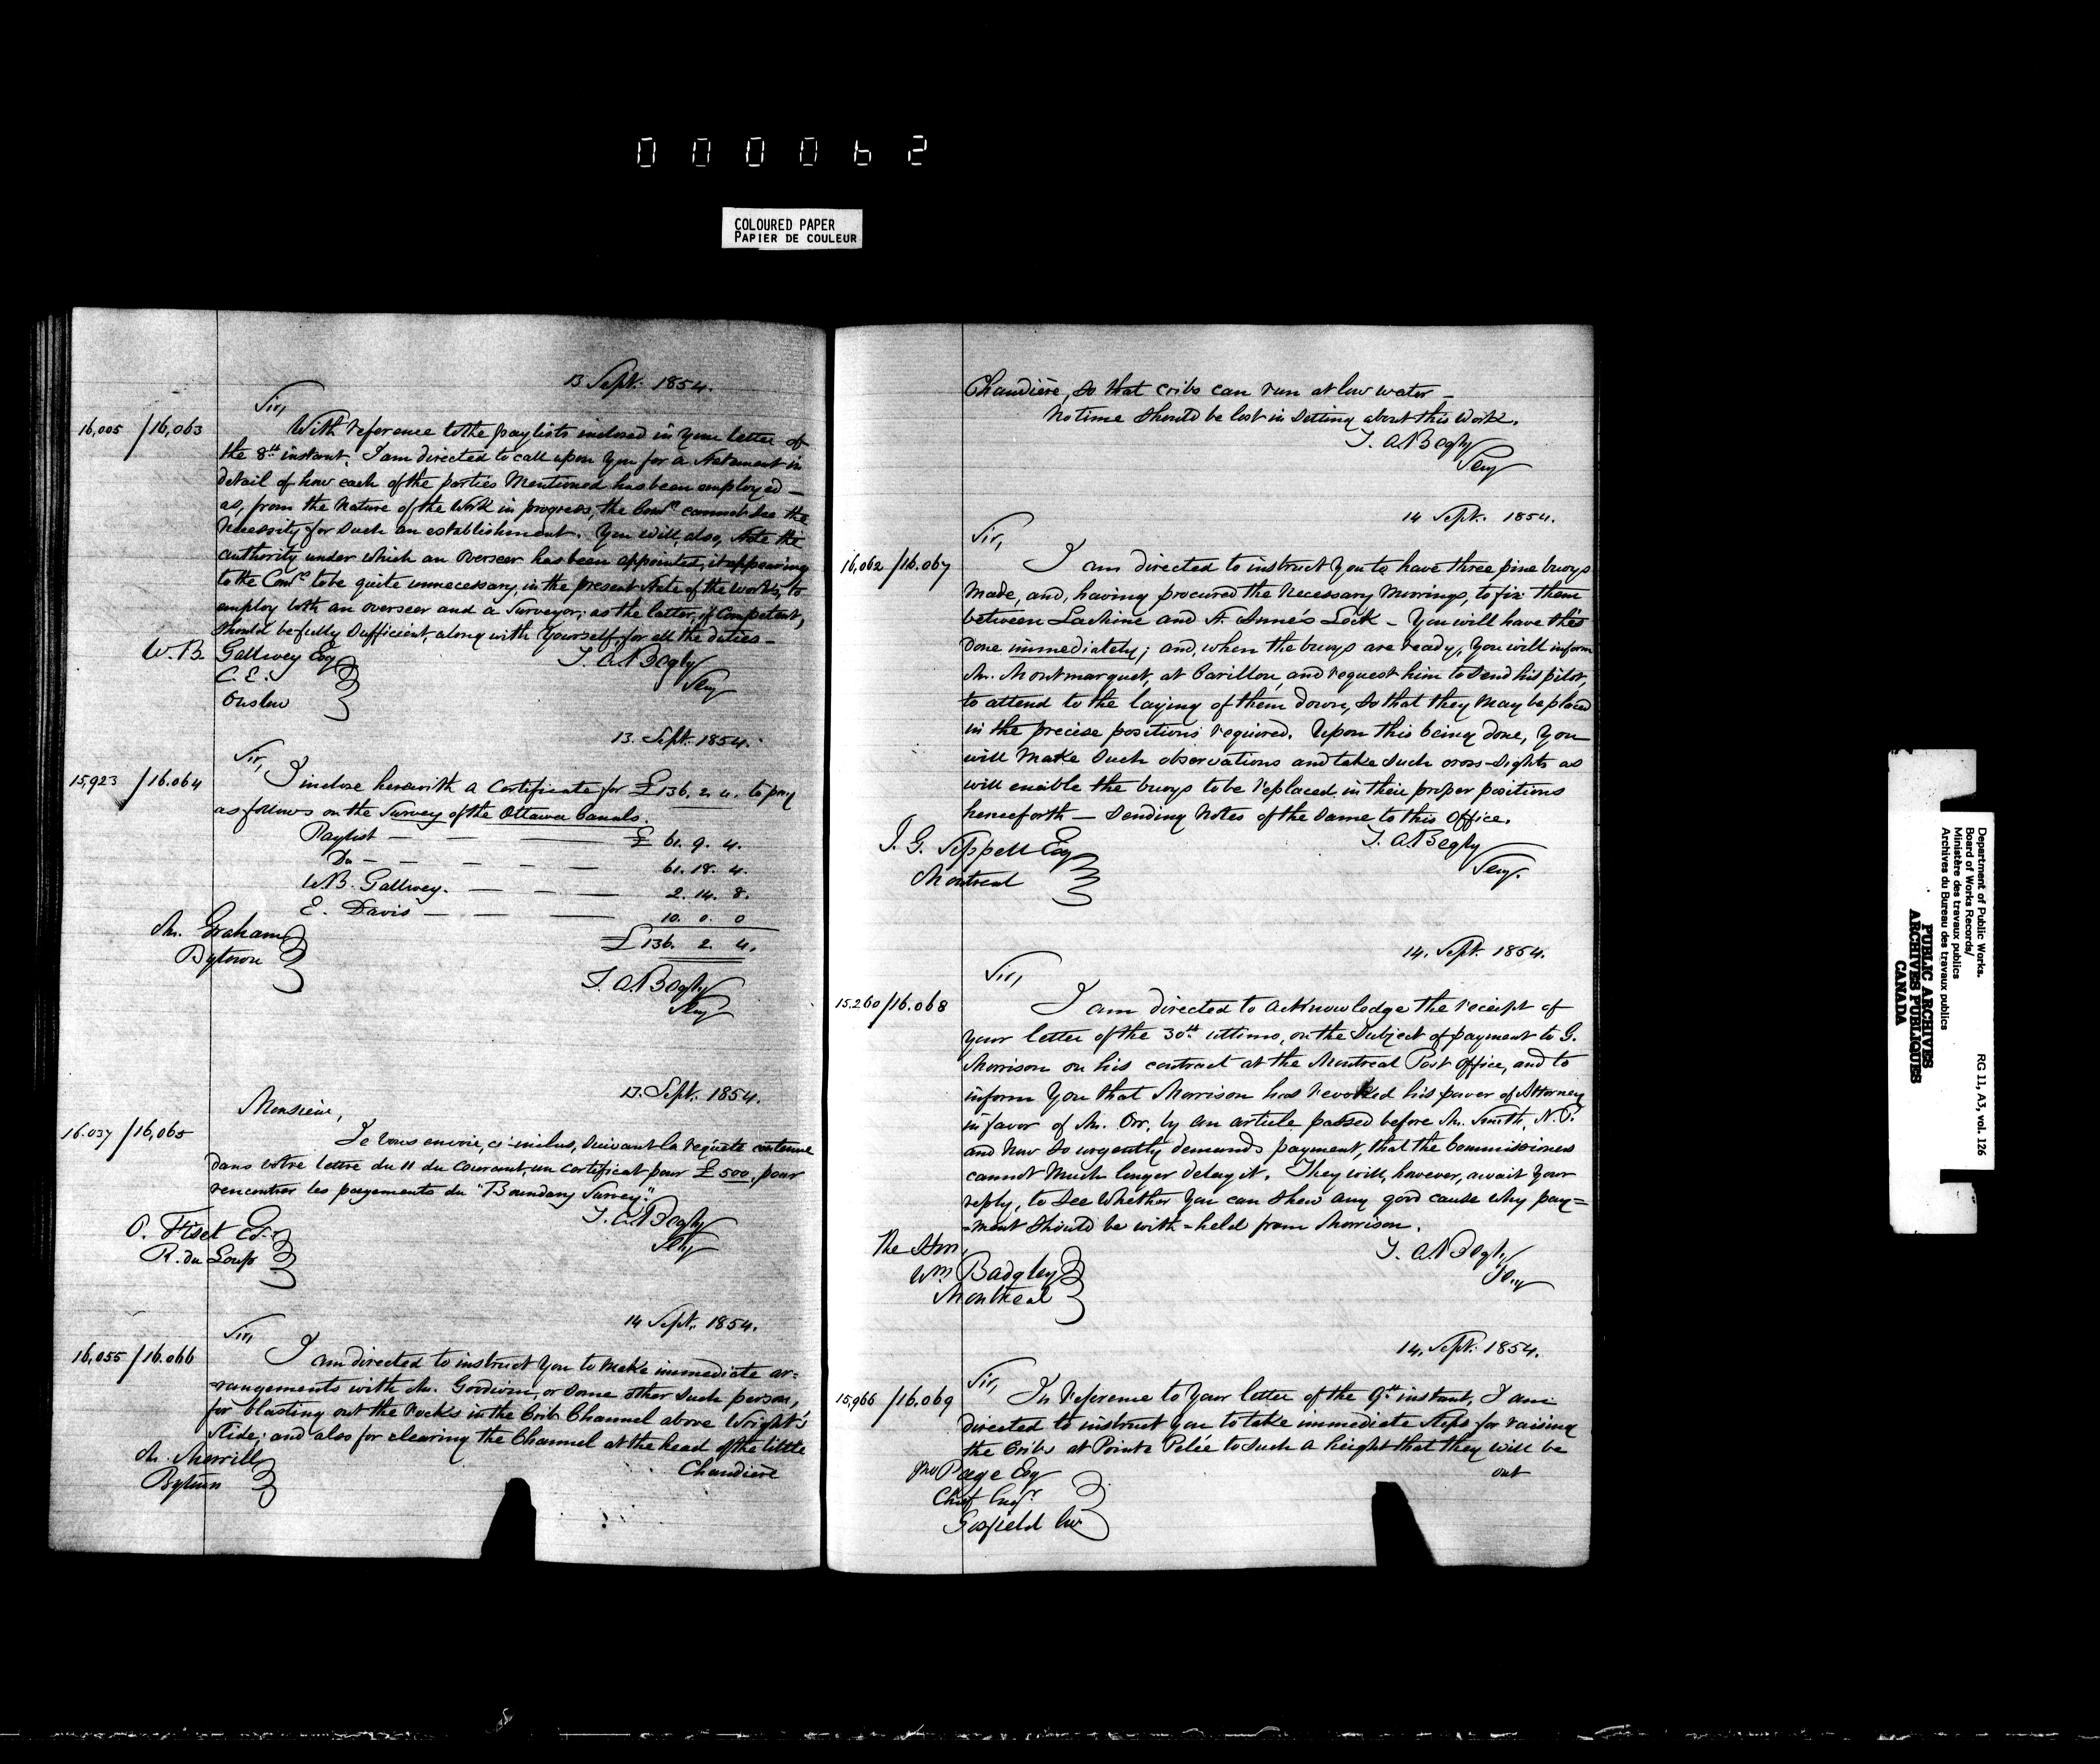 000062
COLOURED PAPER
PAPIER DE COULEUR
13 Sept. 1854.
Sir,
16,005 / 16,063
With reference to the paylists inclosed in your letter of
the 8th instant, I am directed to call upon you for a Statement in
detail of how each of the parties Mentioned has been employed —
as, from the Nature of the Work in progress, the Comrs cannot see the
Necessity for such an establishment. You will, also, State the
authority under which an Overseer has been appointed, it appearing
to the Comrs to be quite unnecessary, in the present State of the works, to
employ both an overseer and a Surveyor; as the latter, if Competent,
should be fully sufficient, along with Yourself, for all the duties —
W. B. Gallwey Esq
C. E.
Onslow
T. A. Begly
Secy
13. Sept. 1854.
Sir,
15,923 / 16.064
I inclose herewith a Certificate for £136. 2. 4. to pay
as follows on the Survey of the Ottawa Canals.
Paylist — — £ 61. 9. 4.
Do — — — — 61. 18. 4.
W. B. Gallwey. — — — 2. 14. 8.
E. Davis — — — 10. 0. 0
£136. 2. 4.
Mr. Graham
Bytown
T. A. Begly
Secy
13. Sept. 1854.
Monsieur,
16.037 / 16,065
Je vous envoie, ci-inclus, suivant la requête contenue
dans votre lettre du 11 du courant, un certificat pour £500, pour
rencontrer les payements du "Boundary Survey."
O. Fiset Esq
R. du Loup
T. A. Begly
Secy
14 Sept. 1854.
Sir,
16,055 / 16.066
I am directed to instruct you to make immediate ar=
=rangements with Mr. Goodwin, or some other such person,
for blasting out the rocks in the Crib Channel above Wright's
Slide; and also for clearing the Channel at the head of the little
Chaudière
Mr. Merrill
Bytown
Chaudière, so that cribs can run at low water —
No time should be lost in setting about this Work.
T. A. Begly
Secy
14 Sept. 1854.
Sir,
16,062 / 16.067
I am directed to instruct you to have three pine buoys
made, and, having procured the necessary moorings, to fix them
between Lachine and St. Anne's Lock — You will have this
done immediately; and, when the buoys are ready, you will inform
Mr. Montmarquet, at Carillon, and request him to send his pilot,
to attend to the laying of them down, so that they may be placed
in the precise positions required. Upon this being done, you
will make such observations and take such cross-sights as
will enable the buoys to be replaced in their proper positions
henceforth — sending notes of the same to this Office.
J. G. Sippell Esq
Montreal
T. A. Begly
Secy.
14. Sept. 1854.
Sir,
15.260 / 16.068
I am directed to acknowledge the receipt of
your letter of the 30th ultimo, on the subject of payment to G.
Morrison on his contract at the Montreal Post Office, and to
inform you that Morrison has revoked his power of Attorney
in favor of Mr. Orr, by an article passed before Mr. Smith, N.P.
and now so urgently demands payment, that the Commissioners
cannot much longer delay it. They will, however, await your
reply, to see whether you can shew any good cause why pay=
=ment should be with=held from Morrison.
The Hon.
Wm Badgley
Montreal
T. A. Begly
Secy
14. Sept. 1854.
Sir,
15,966 / 16.069
In reference to your letter of the 9th instant, I am
directed to instruct you to take immediate steps for raising
the Cribs at Pointe Pelée to such a height that they will be
out
Jno Page Esq
Chief Engr
Gosfield CW
Department of Public Works.
Board of Works Records/
Ministère des travaux publics
Archives du Bureau des travaux publics
RG 11, A3, vol. 126
PUBLIC ARCHIVES
ARCHIVES PUBLIQUES
CANADA